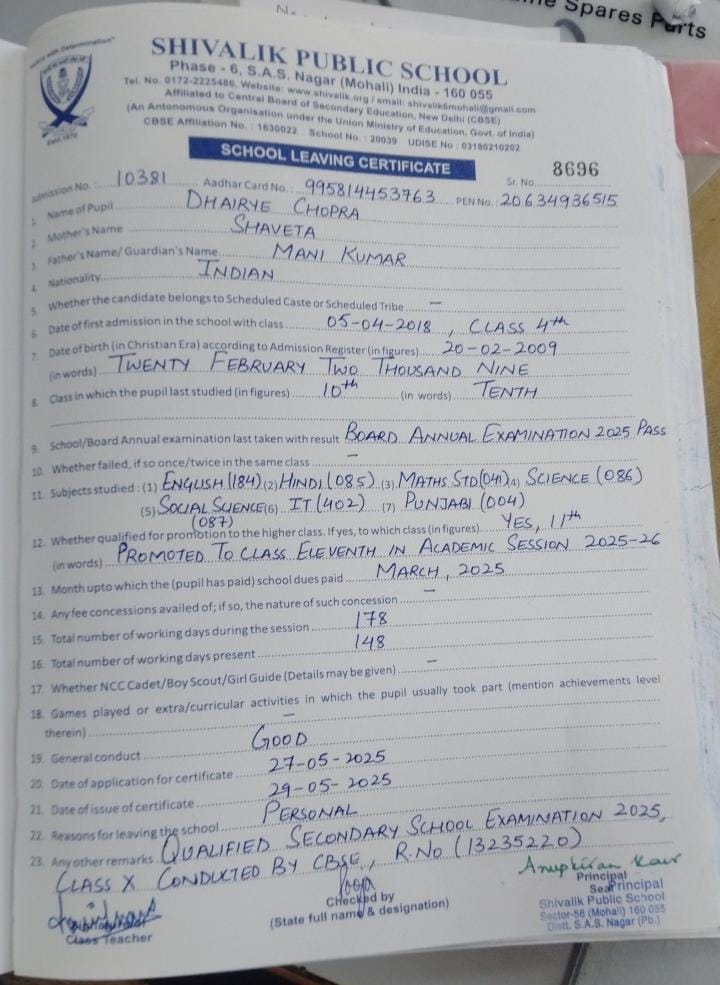 Spares Parts
SHIVALIK PUBLIC SCHOOL
Phase - 6, S.A.S. Nagar (Mohali) India - 160 055
Tel. No. 0172-2225486, Website: www.shivalik.org / email: shivalik6mohali@gmail.com
Affiliated to Central Board of Secondary Education, New Delhi (CBSE)
(An Antonomous Organisation under the Union Ministry of Education, Govt. of India)
CBSE Affiliation No. : 1630022 School No. : 20039 UDISE No : 03180210202
SCHOOL LEAVING CERTIFICATE
Sr. No. 8696
Admission No. : 10381 Aadhar Card No. : 995814453763 PEN No. : 20634936515
1. Name of Pupil DHAIRYE CHOPRA
2. Mother's Name SHAVETA
3. Father's Name/ Guardian's Name MANI KUMAR
4. Nationality INDIAN
5. Whether the candidate belongs to Scheduled Caste or Scheduled Tribe —
6. Date of first admission in the school with class 05-04-2018, CLASS 4th
7. Date of birth (in Christian Era) according to Admission Register (in figures) 20-02-2009
(in words) TWENTY FEBRUARY TWO THOUSAND NINE
8. Class in which the pupil last studied (in figures) 10th (in words) TENTH
9. School/Board Annual examination last taken with result BOARD ANNUAL EXAMINATION 2025 PASS
10. Whether failed, if so once/twice in the same class —
11. Subjects studied : (1) ENGLISH (184) (2) HINDI (085) (3) MATHS STD (041) (4) SCIENCE (086)
(5) SOCIAL SCIENCE (6) IT (402) (7) PUNJABI (004)
(087)
12. Whether qualified for promotion to the higher class. If yes, to which class (in figures) YES, 11th
(in words) PROMOTED TO CLASS ELEVENTH IN ACADEMIC SESSION 2025-26
13. Month upto which the (pupil has paid) school dues paid MARCH, 2025
14. Any fee concessions availed of; if so, the nature of such concession —
15. Total number of working days during the session 178
16. Total number of working days present 148
17. Whether NCC Cadet/Boy Scout/Girl Guide (Details may be given) —
18. Games played or extra/curricular activities in which the pupil usually took part (mention achievements level
therein) —
19. General conduct GOOD
20. Date of application for certificate 27-05-2025
21. Date of issue of certificate 29-05-2025
22. Reasons for leaving the school PERSONAL
23. Any other remarks QUALIFIED SECONDARY SCHOOL EXAMINATION 2025,
CLASS X CONDUCTED BY CBSE, R.NO (13235220)
Anupkiran Kaur
Class Teacher
Checked by
(State full name & designation)
Principal
Seal
Principal
Shivalik Public School
Sector-56 (Mohali) 160 055
Distt. S.A.S. Nagar (Pb.)